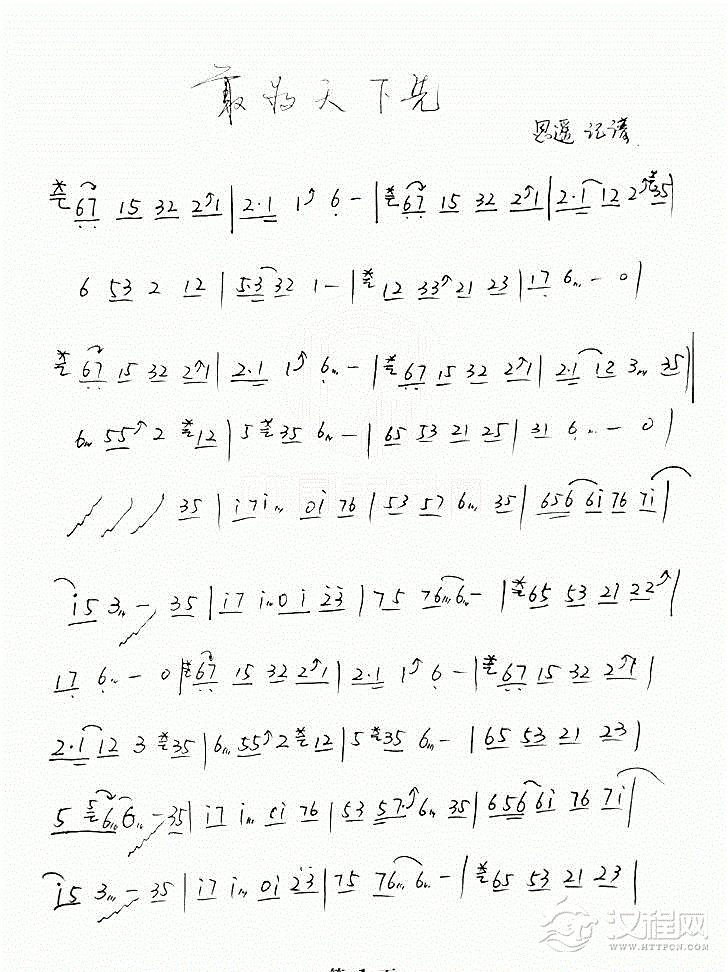 敢为天下先
思遥 记谱
67 15 32 21 | 2·1 1 6 - | 67 15 32 21 | 2·1 12 2 35 |
6 53 2 12 | 5·3 32 1 - | 12 33 21 23 | 17 6 - 0 |
67 15 32 21 | 2·1 1 6 - | 67 15 32 21 | 2·1 12 3 35 ||
6 55 2 12 | 5 35 6 - | 65 53 21 25 | 31 6 - 0 |
35 | i7 i 0i 76 | 53 57 6 35 | 656 6i 76 7i |
i5 3 - 35 | i7 i 0 i 23 | 75 76 6 - | 65 53 21 22 |
17 6 - 0 | 67 15 32 21 | 2·1 1 6 - | 67 15 32 21 |
2·1 12 3 35 | 6 55 2 12 | 5 35 6 - | 65 53 21 23 |
5 5 6 6 - 35 | i7 i 0i 76 | 53 57· 6 35 | 656 6i 76 7i |
i5 3 - 35 | i7 i 0i 23 | 75 76 6 - | 65 53 21 23 |
汉程网
WWW.HTTPCN.COM